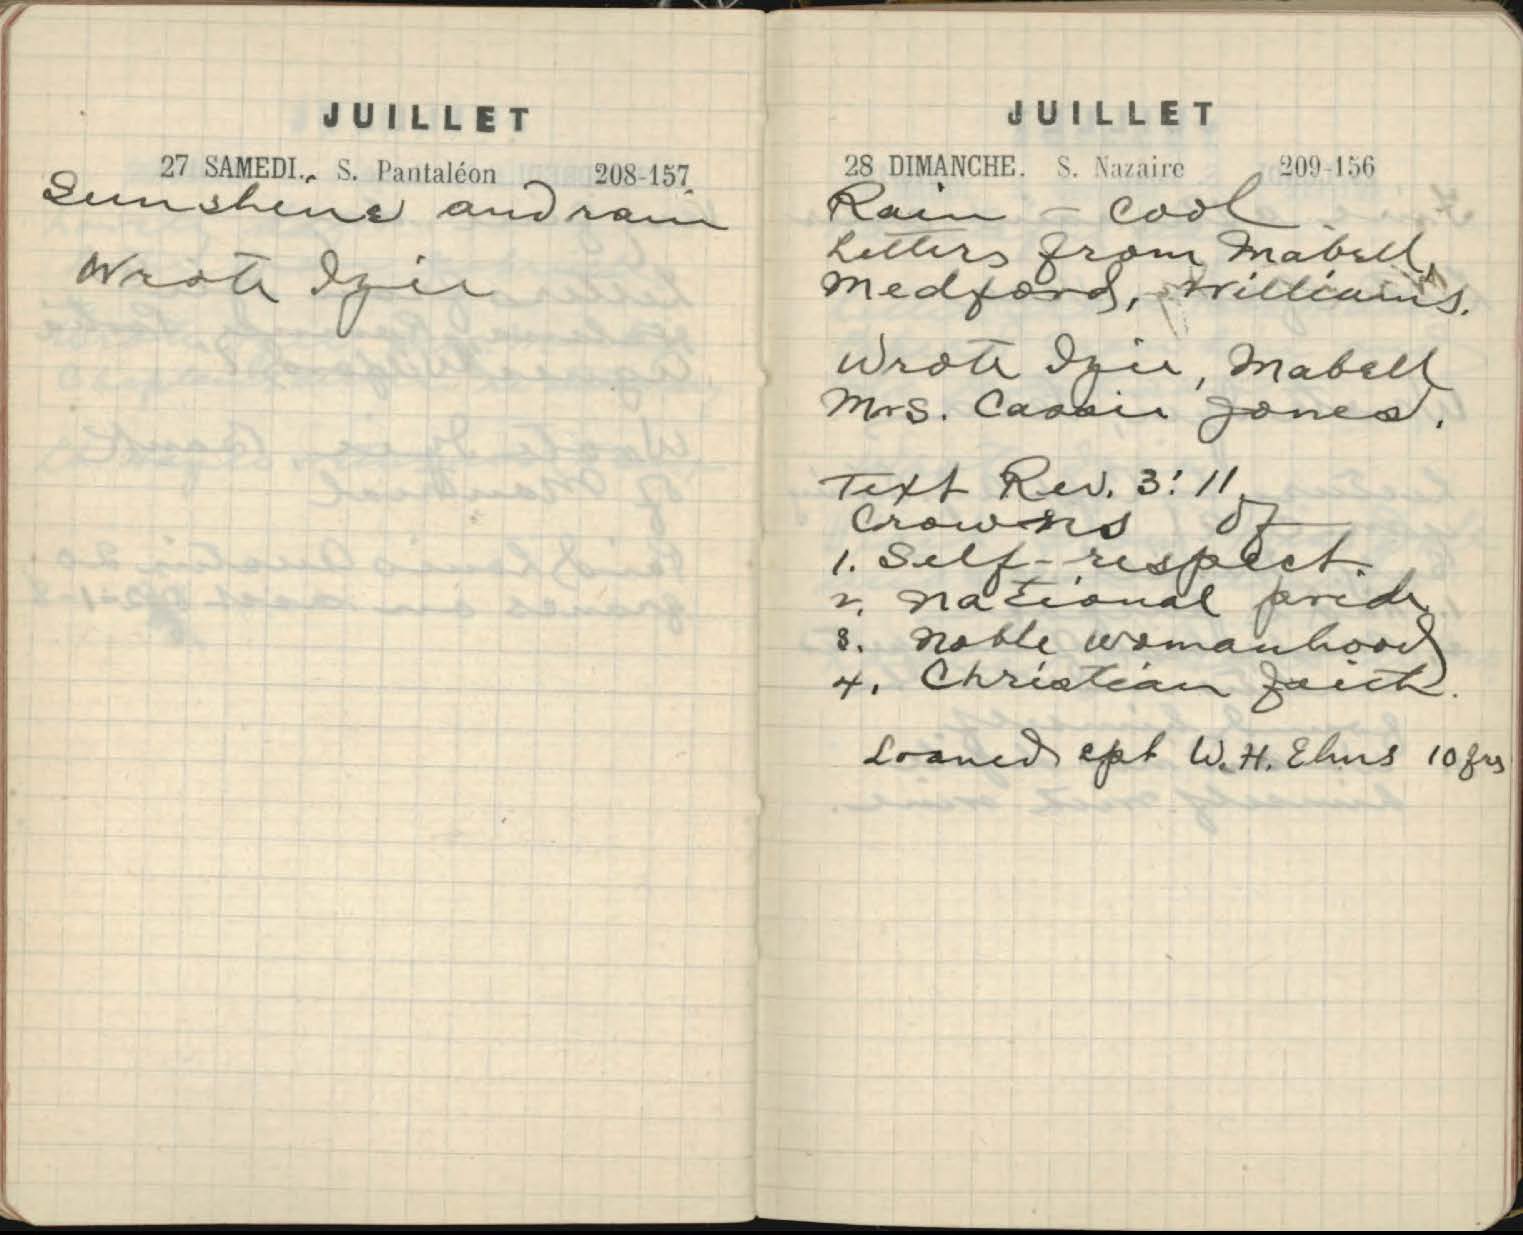 JUILLET
27 SAMEDI. S. Pantaléon 208-157
Sunshine and rain
Wrote Izie
JUILLET
28 DIMANCHE. S. Nazaire 209-156
Rain - cool
Letters from Mabell,
Medford, Williams.
Wrote Izie, Mabell
Mrs. Cassie Jones.
Text Rev. 3:11.
Crowns of
1. Self-respect.
2. National pride
3. Noble womanhood
4. Christian faith.
Loaned cpt W.H. 10 frs